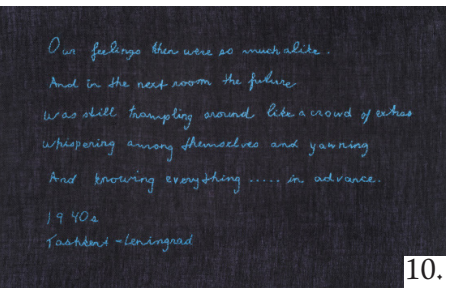 Our feelings then were so much alike.
And in the next room the future
was still trampling around like a crowd of extras
whispering among themselves and yawning
And knowing everything ..... in advance.
1940s
Tashkent - Leningrad
10.